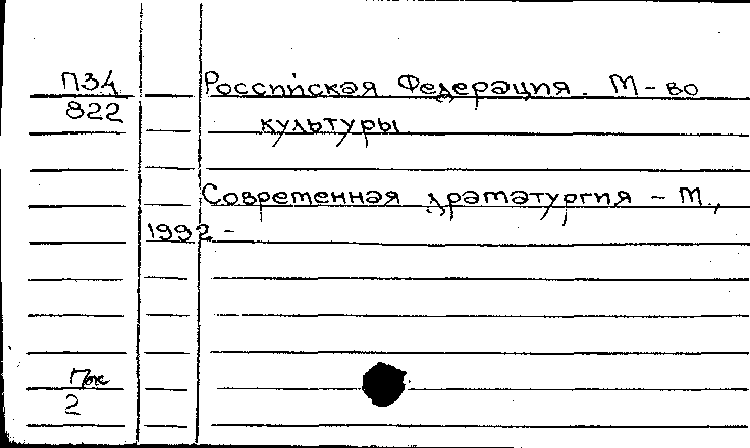 П34 Российская Федерация. М-во
822 культуры
Современная драматургия - М.,
1992 -
2